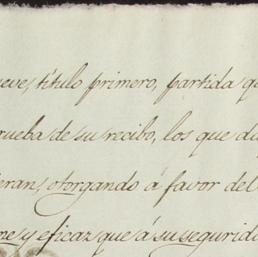 ueve, título primero, partida q
rueba de su recibo, los que d
eran, otorgando á favor del
me y eficaz que á su segurid